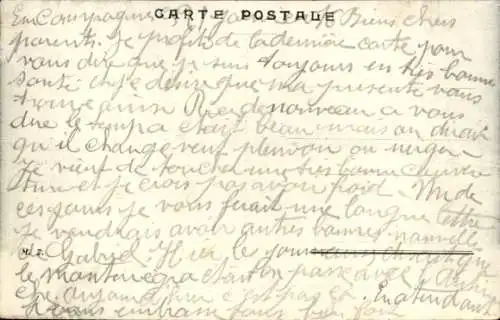 CARTE POSTALE
En Campagne Biens chers
parents. Je profite de la dernière carte pour
vous dire que je suis toujours en très bonne
santé et je désire que ma présente vous
trouve ainsi Rien de nouveau a vous
dire le temps était beau mais on dirait
qu'il change veut pleuvoir ou neiger
Je vient de toucher une très bonne couver
ture et je crois pas avoir froid - Un de
ces jours je vous ferait une longue lettre
Je voudrais avoir autres bonnes nouvelles
Gabriel. Hier le jour
le Montenegro passe avec
aujourd'hui c'est pas ça. En attendant
vous embrasse tous bien fort